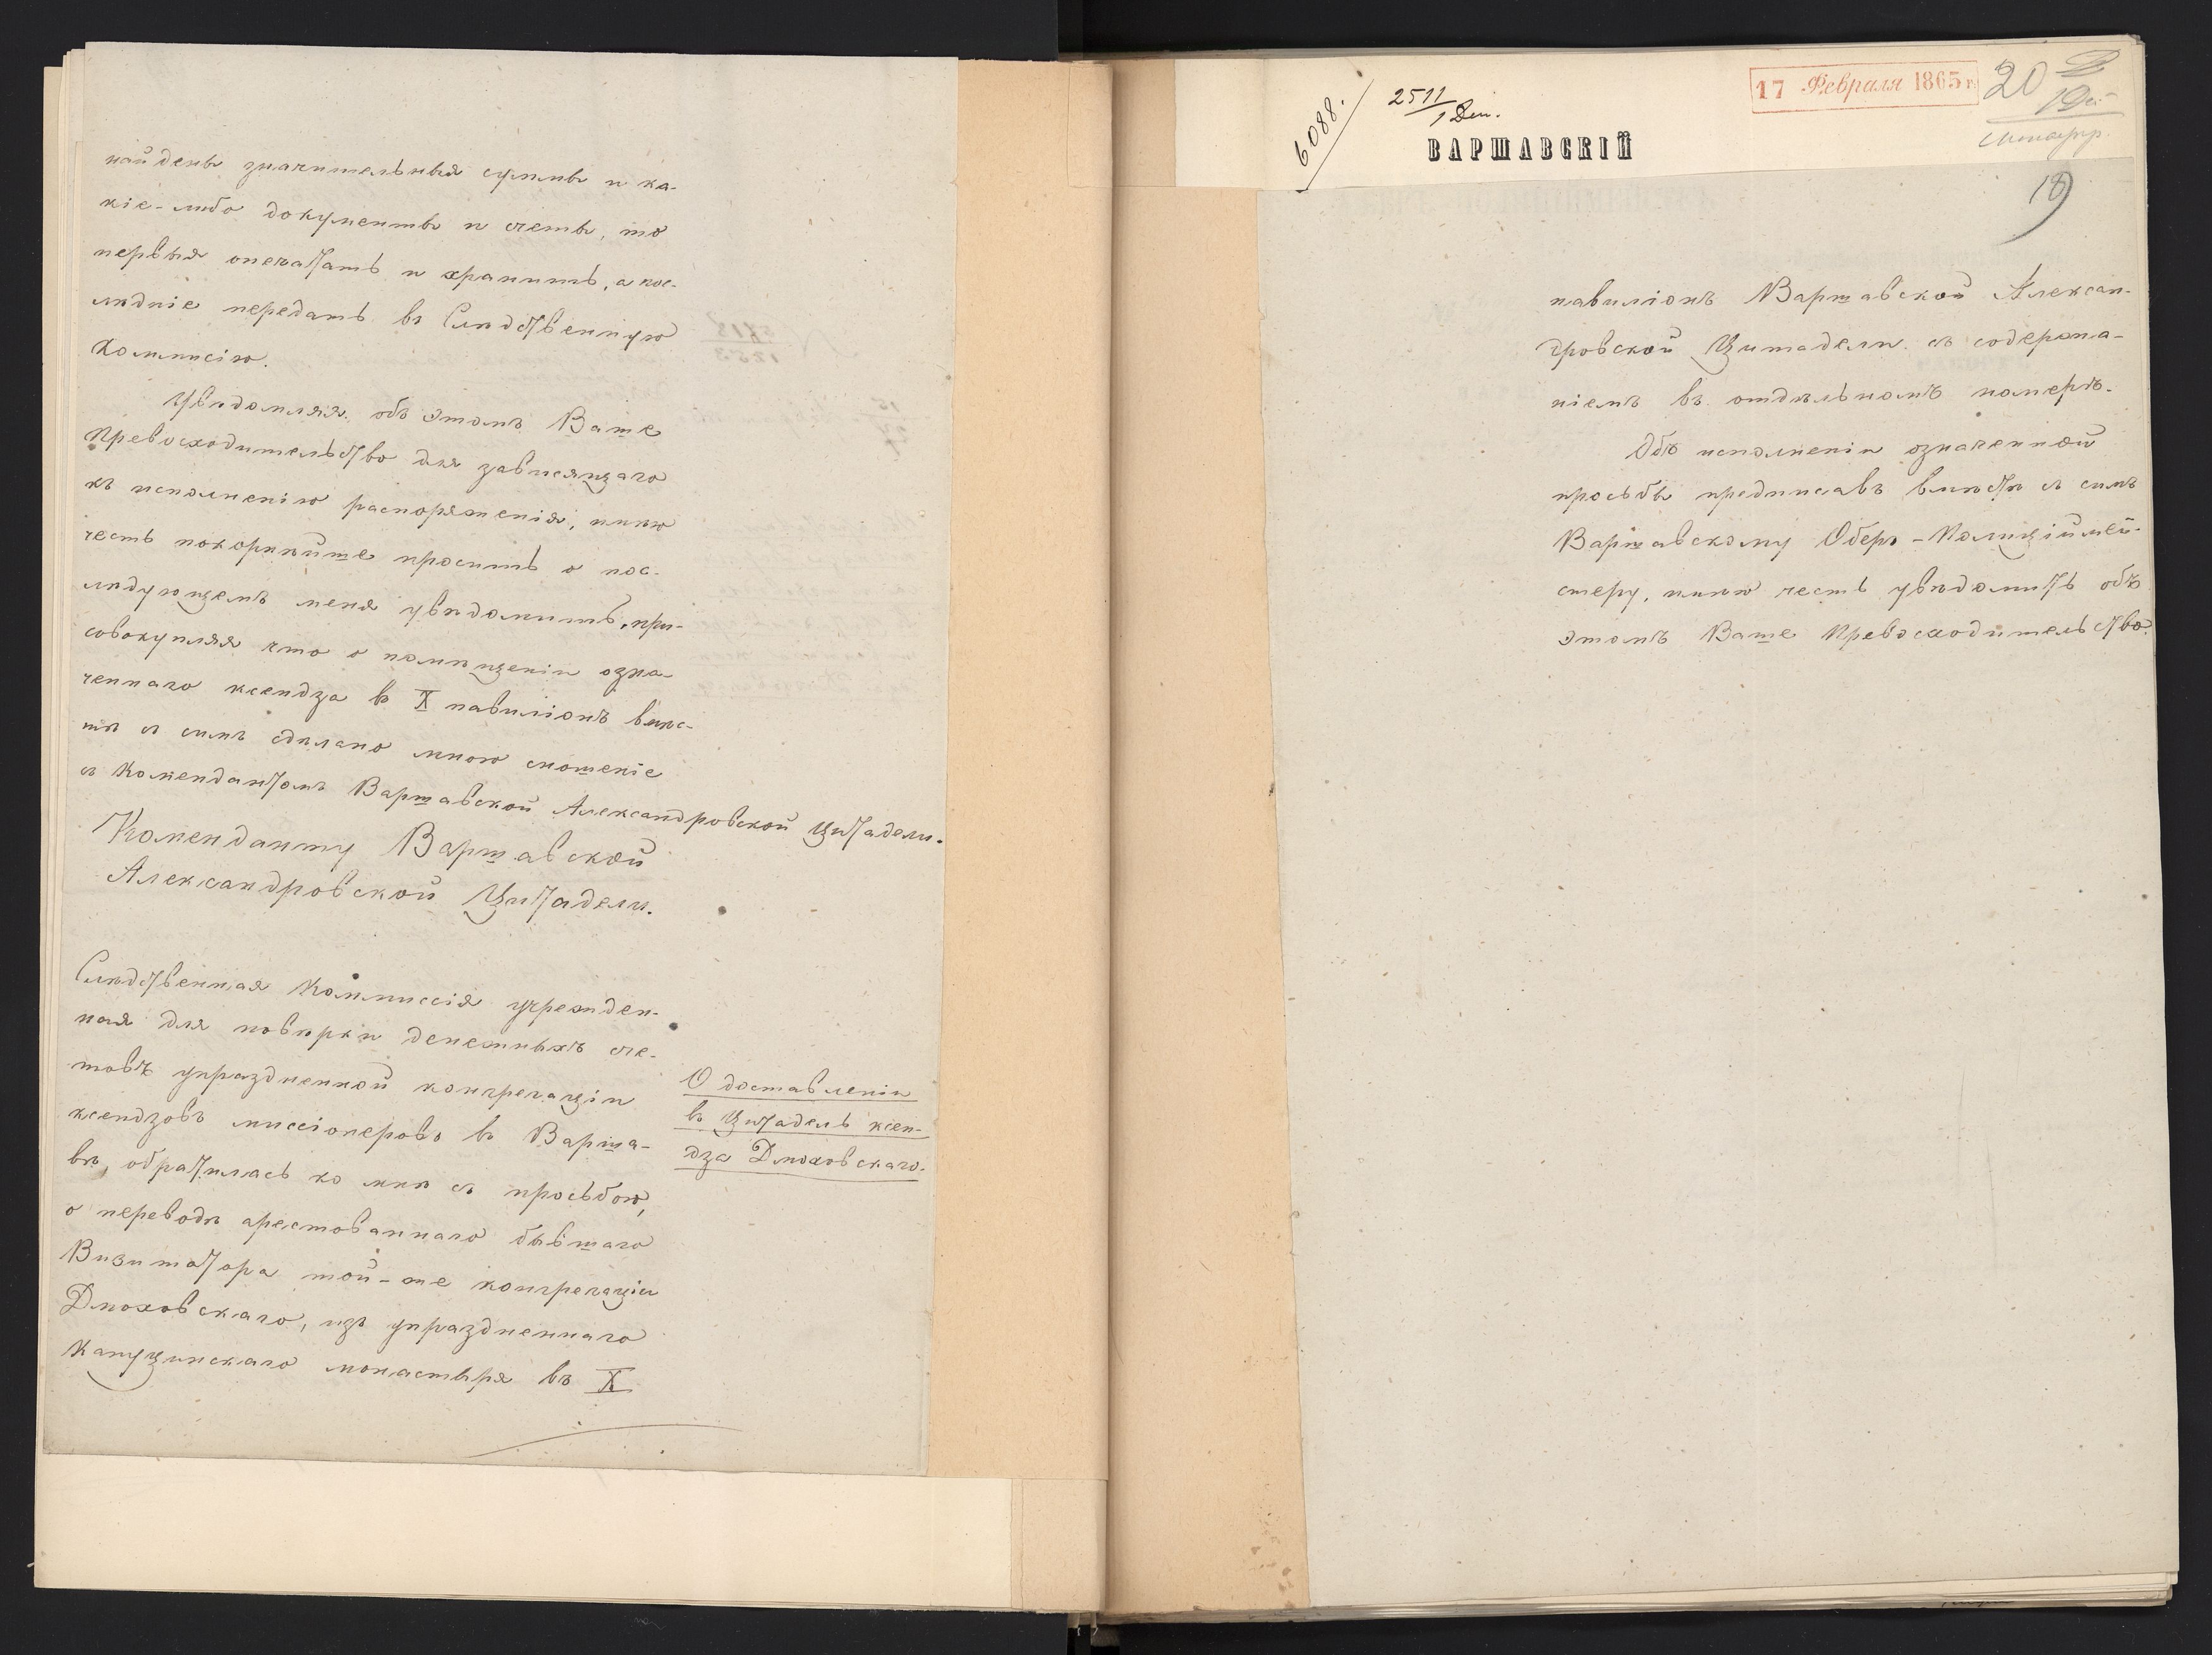 найдены значительныя суммы и ка-
кіе-либо документы и счеты, то
первыя опечатать и хранить, а пос-
лѣдніе передать въ Слѣдственную
Коммисію.
Увѣдомляя объ этомъ Ваше
Превосходительство для зависящаго
къ исполненію распоряженія, имѣю
честь покорнѣйше просить о пос-
лѣдующемъ меня увѣдомить, при-
совокупляя что о помѣщеніи озна-
ченнаго ксендза въ X павиліонъ вмѣс-
тѣ съ симъ сдѣлано мною сношеніе
съ Комендантомъ Варшавской Александровской Цитадели.
Коменданту Варшавской
Александровской Цитадели.
Слѣдственная Коммиссія учрежден-
ная для повѣрки денежныхъ сче-
товъ упраздненной конгрегаціи
ксендзовъ миссіонеровъ въ Варша-
вѣ, обратилась ко мнѣ съ просьбою,
о переводѣ арестованнаго бывшаго
Визитатора той-же конгрегаціи
Дмоховскаго, изъ упраздненнаго
Капуцинскаго монастыря въ X
О доставленіи
въ Цитадель ксен-
дза Дмоховскаго.
6088.
2511
1 Ден.
17 Февраля 1865 г.
20
ВАРШАВСКІЙ
19
павиліонъ Варшавской Алексан-
дровской Цитадели съ содержа-
ніемъ въ отдѣльномъ номерѣ.
Объ исполненіи означенной
просьбы предписавъ вмѣстѣ съ симъ
Варшавскому Оберъ-Полиціймей-
стеру, имѣю честь увѣдомить объ
этомъ Ваше Превосходительство.